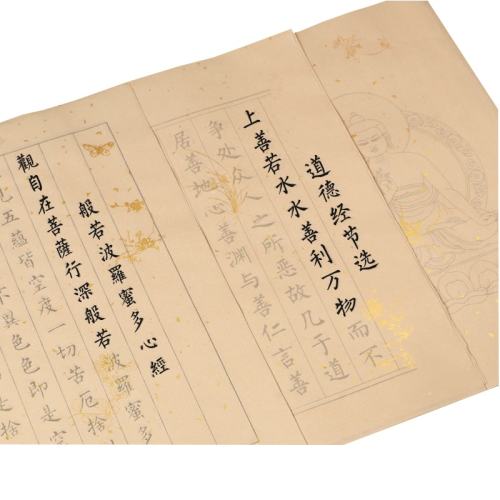 道德经节选
上善若水水善利万物而不
争处众人之所恶故几于道
居善地心善渊与善仁言善
般若波羅蜜多心經
觀自在菩薩行深般若波羅蜜多
五蘊皆空度一切苦厄捨
異色色即是空
是捨